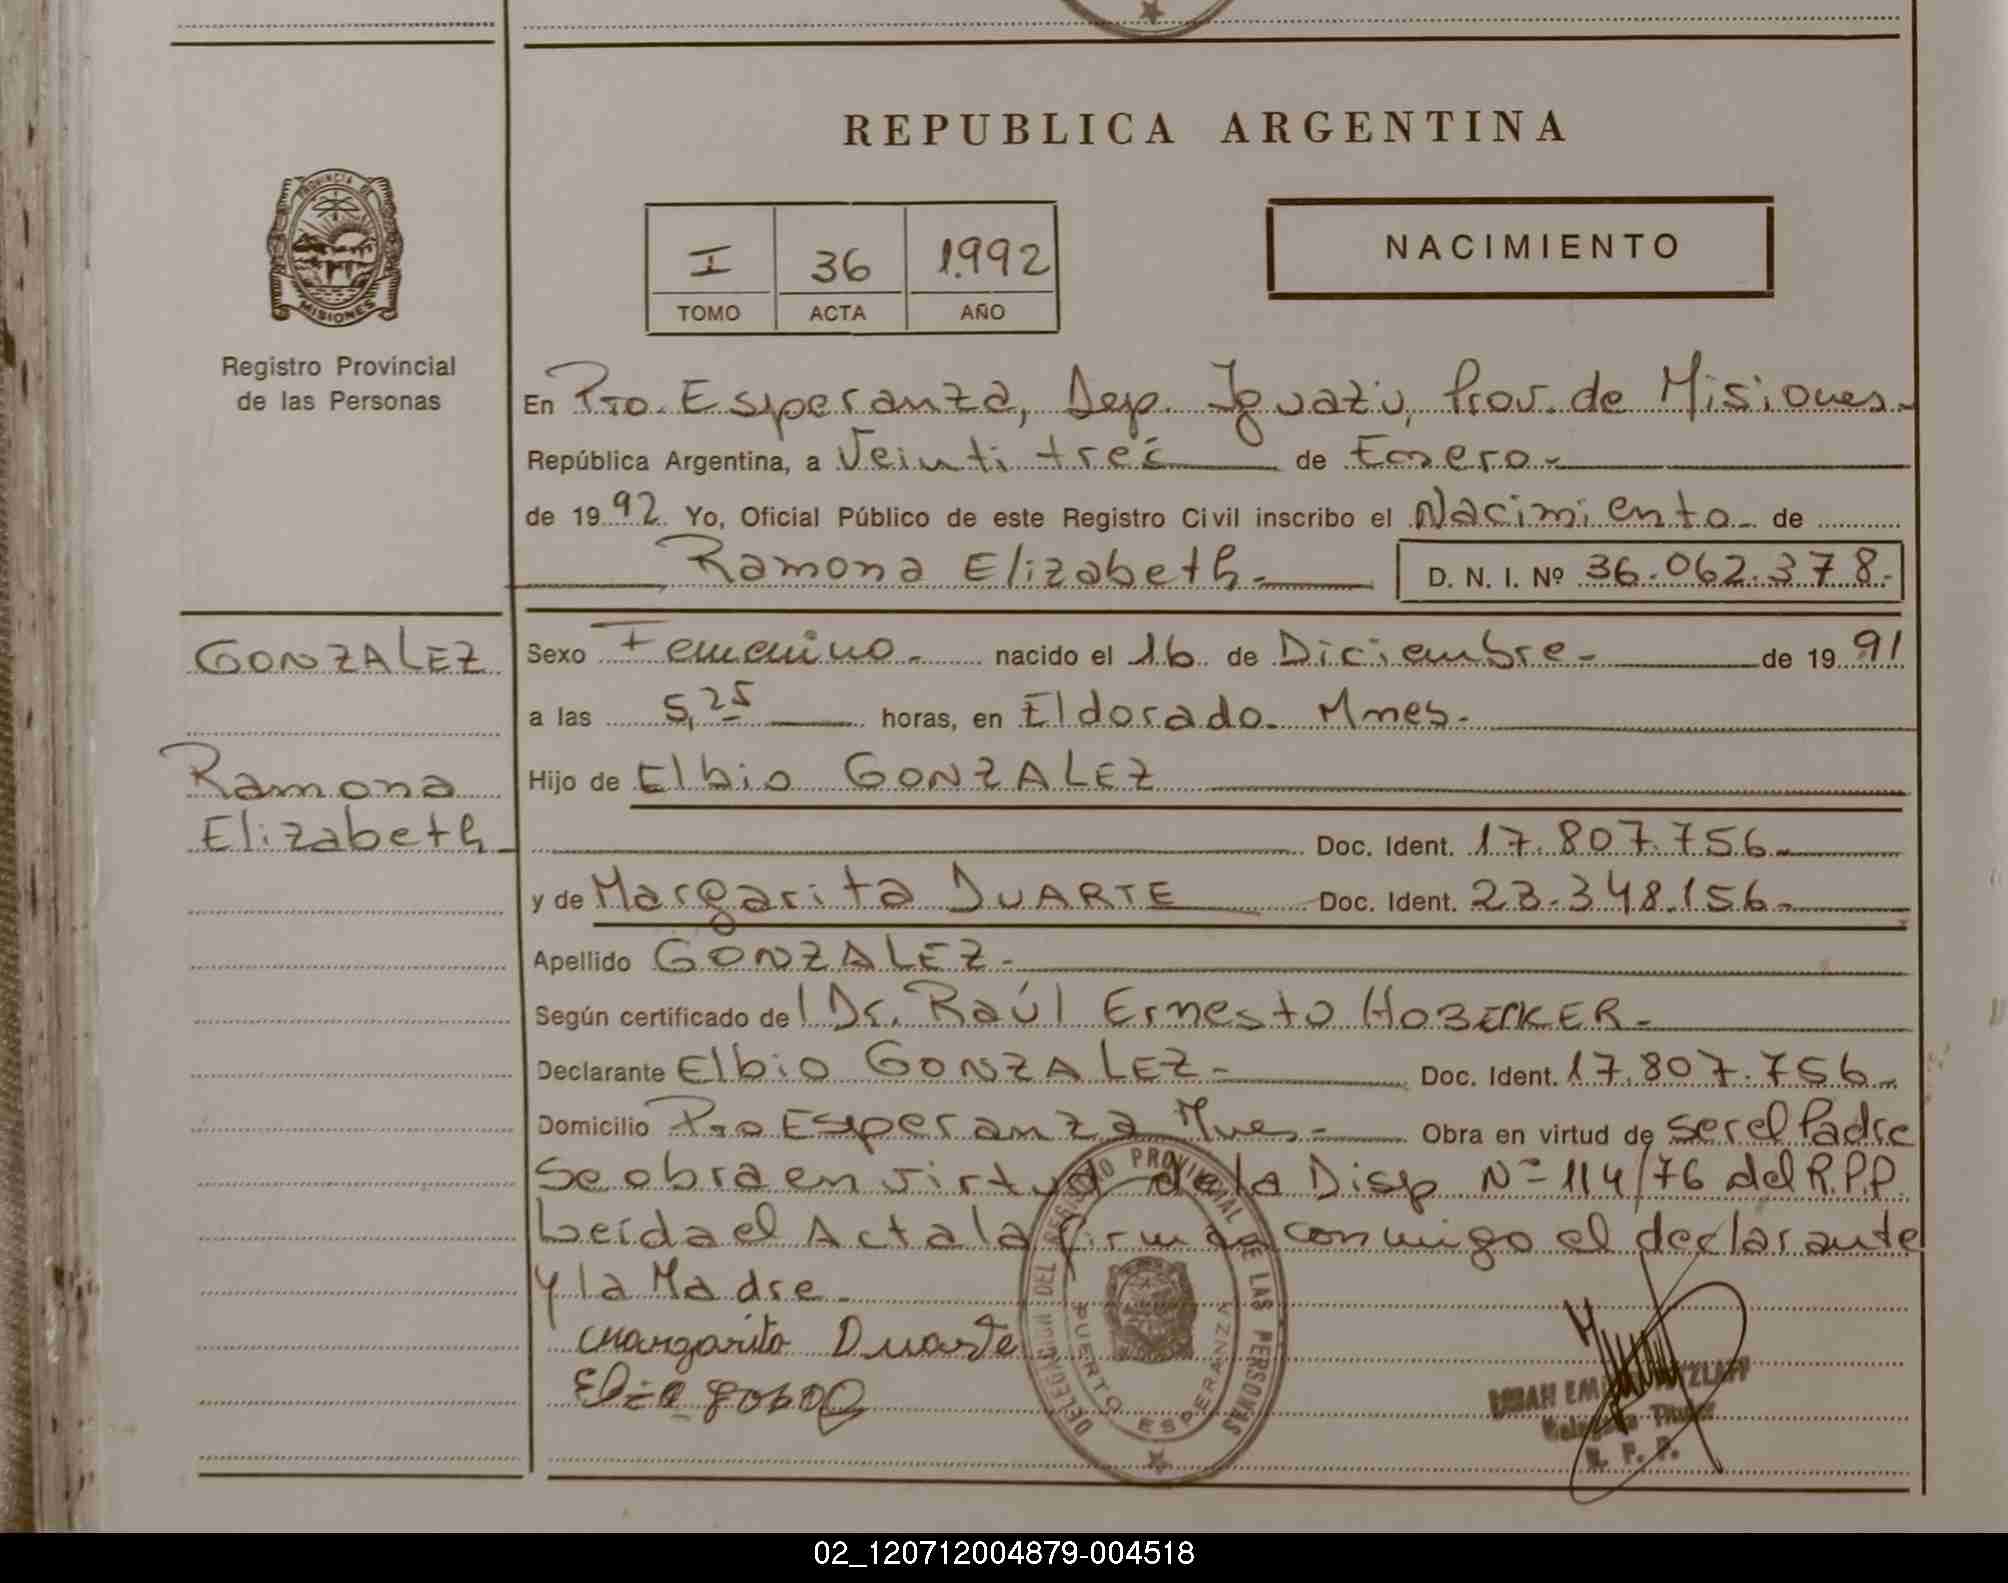 REPUBLICA ARGENTINA
PROVINCIA DE
MISIONES
Registro Provincial
de las Personas
I 36 1.992
TOMO ACTA AÑO
NACIMIENTO
En Pto. Esperanza, Dep. Iguazú, Prov. de Misiones.-
República Argentina, a Veinti tres de Enero.-
de 19 92 Yo, Oficial Público de este Registro Civil inscribo el Nacimiento de
Ramona Elizabeth.- D. N. I. Nº 36.062.378.-
GONZALEZ
Ramona
Elizabeth
Sexo Femenino.- nacido el 16 de Diciembre.- de 19 91
a las 5,25 horas, en Eldorado. Mnes.-
Hijo de Elbio GONZALEZ
Doc. Ident. 17.807.756.-
y de Margarita DUARTE Doc. Ident. 23.348.156.-
Apellido GONZALEZ.-
Según certificado del Dr. Raúl Ernesto
Declarante Elbio GONZALEZ.- Doc. Ident. 17.807.756.-
Domicilio Pto Esperanza Mnes.- Obra en virtud de ser el Padre
Se obra en virtud de la Disp Nº 114/76 del R.P.P.
Leída el Acta la firman conmigo el declarante
y la Madre.
Margarita Duarte
DELEGACION DEL REGISTRO PROVINCIAL DE LAS PERSONAS
PUERTO ESPERANZA
Delegado Titular
R. P. P.
02_120712004879-004518